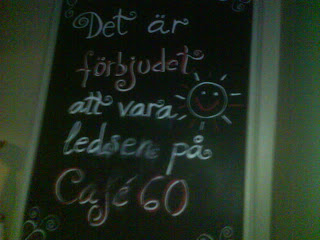 Det är
förbjudet
att vara
ledsen på
Café 60